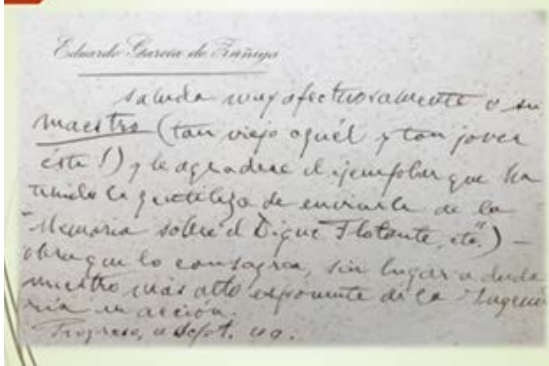 Eduardo García de Zúñiga
saluda muy afectuosamente a su
maestro (tan viejo aquél y tan joven
éste!) y le agradece el ejemplar que ha
tenido la gentileza de enviarle de la
"Memoria sobre el Dique Flotante, etc.") –
obra que lo consagra, sin lugar a duda
nuestro más alto exponente de la Ingenie
ría en acción.
Progreso, Sept.